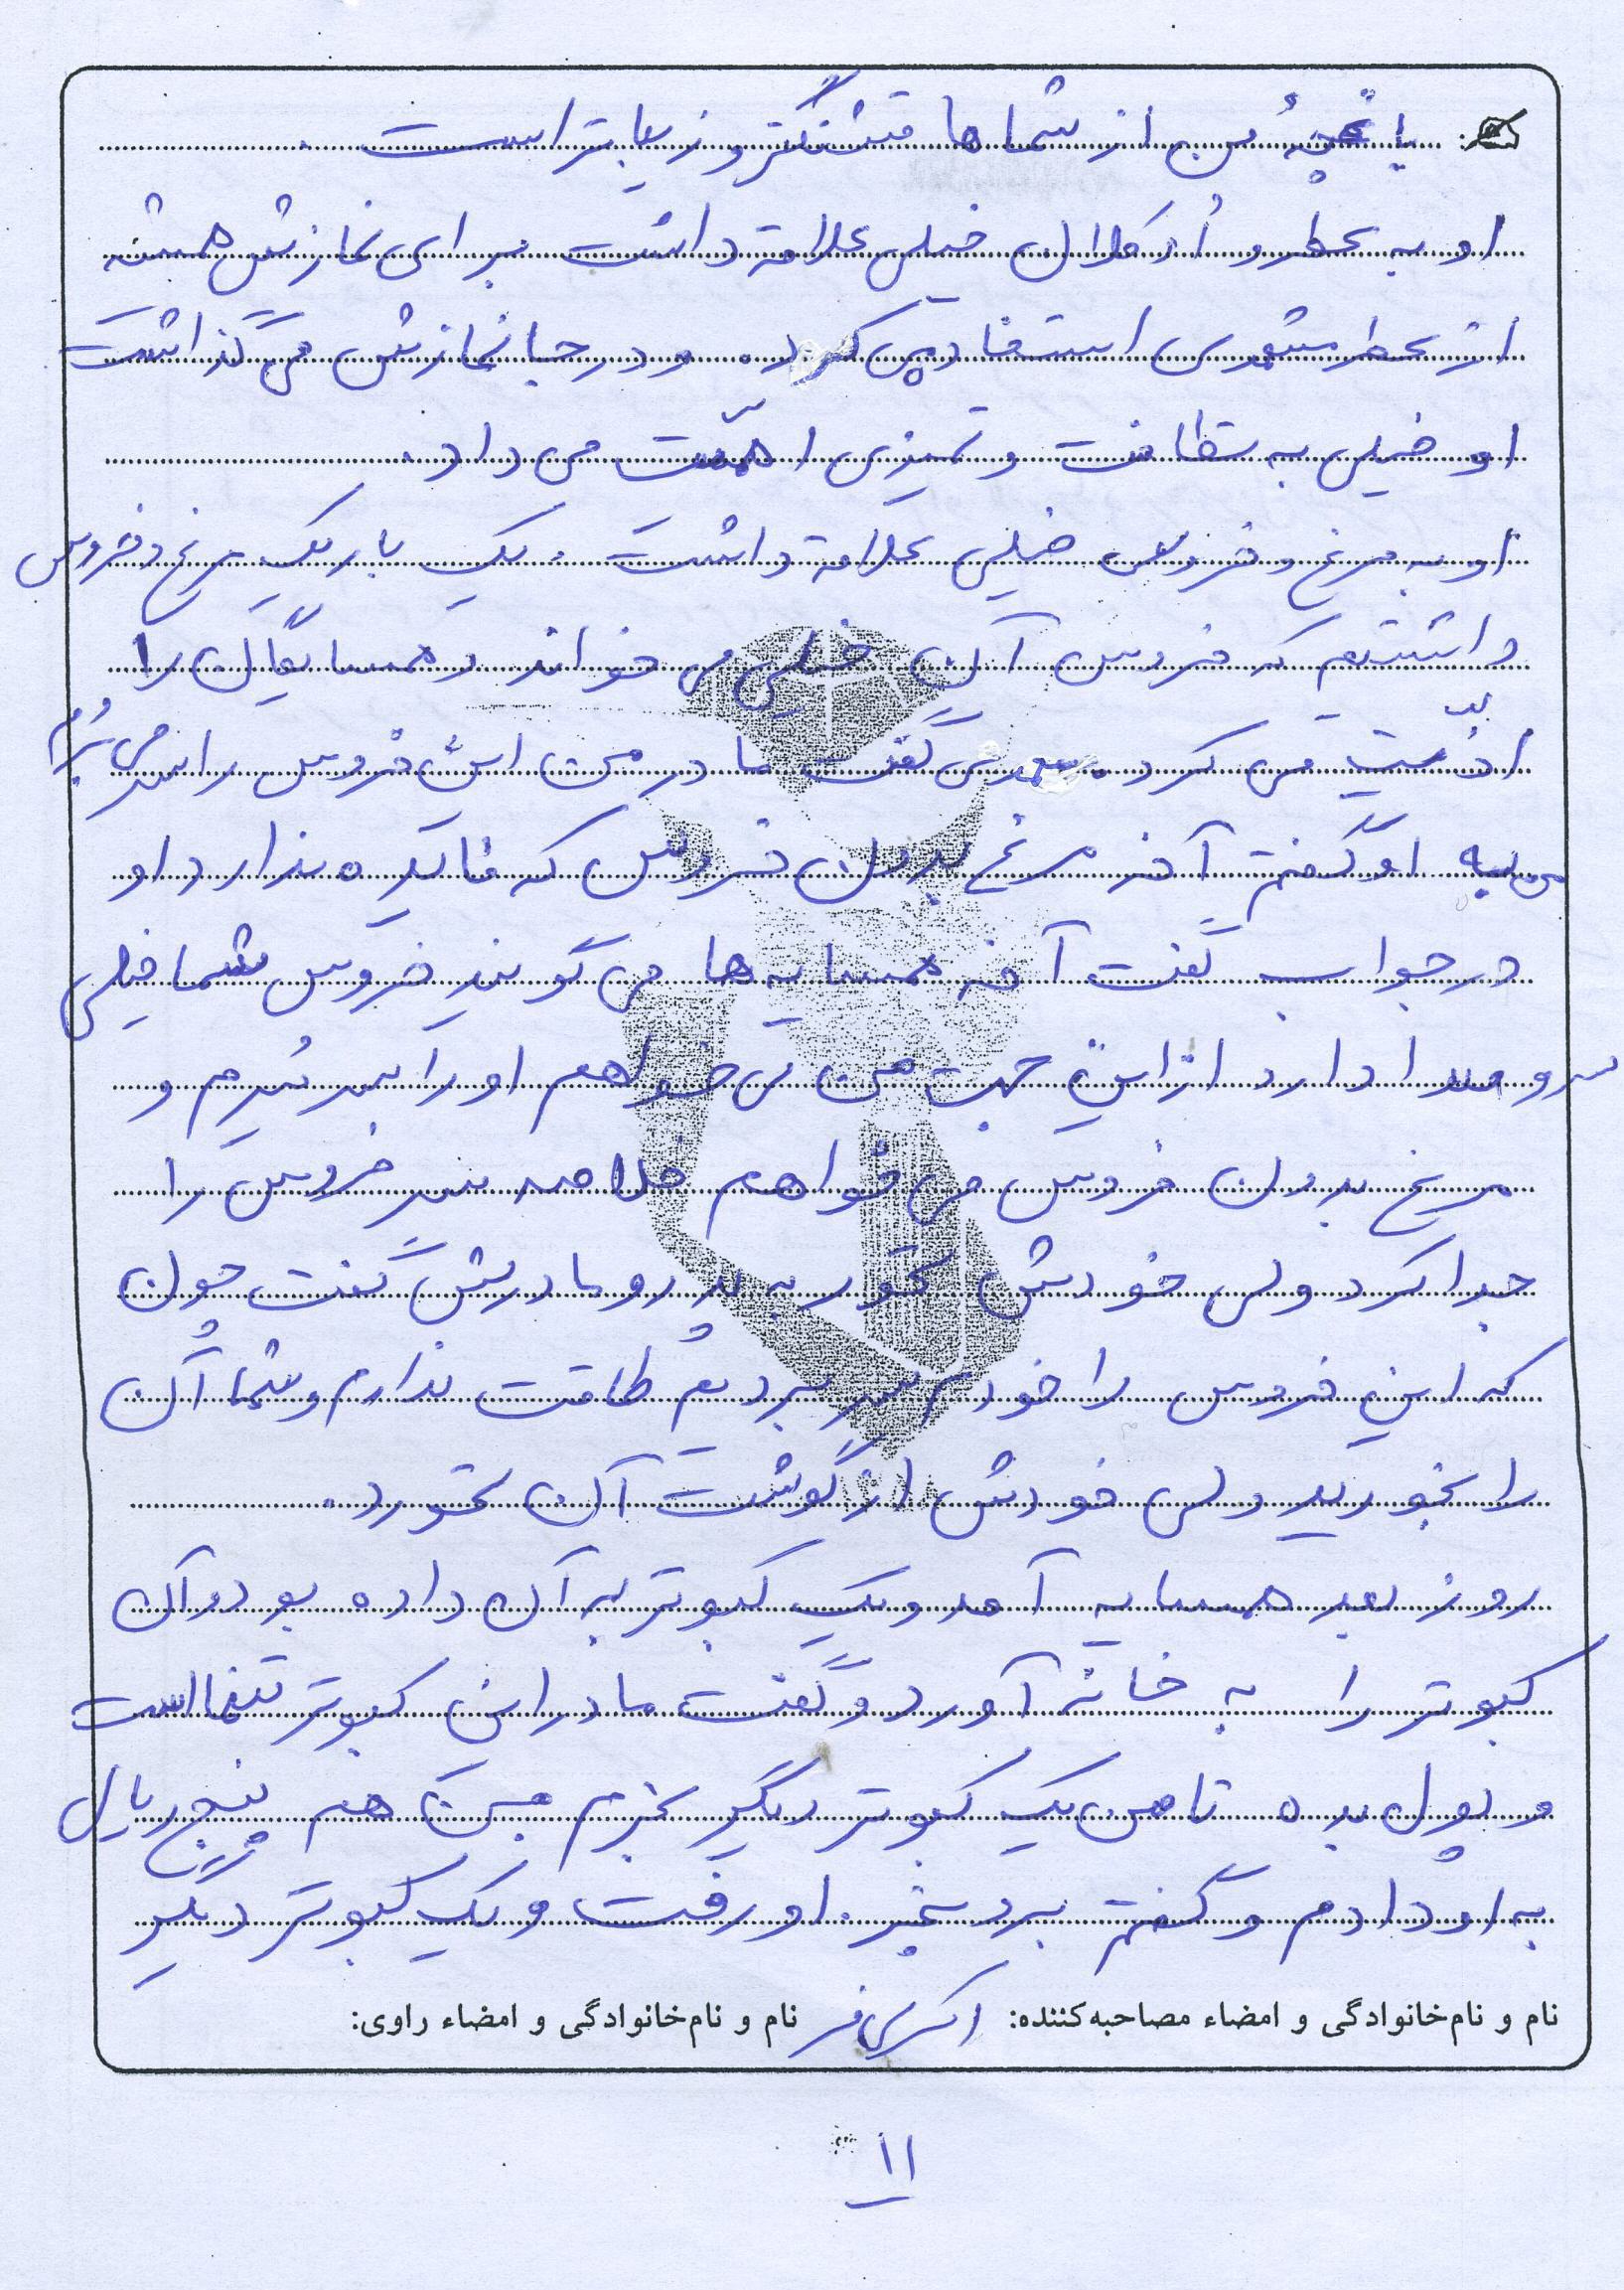 باغچهٔ من از شماها قشنگتر و زیباتر است.
او به عطر و اُدکلان خیلی علاقه داشت برای نمازش همیشه
از عطر مشهدی استفاده می‌کرد. و در جانمازش می‌گذاشت
او خیلی به نظافت و تمیزی اهمّیت می‌داد.
او به مرغ و خروس خیلی علاقه داشت. یک بار یک مرغ و خروس
داشتیم که خروس آن خیلی می‌خواند و همسایگان را
اذّیت می‌کرد. می‌گفت مادر من این خروس را سر می‌بُرم
من به او گفتم آخر مرغ بدون خروس که فایده ندارد او
در جواب گفت آخر همسایه‌ها می‌گویند خروس شما خیلی
سر و صدا دارد از این جهت من می‌خواهم او را سر بُبرم و
مرغ بدون خروس می‌خواهم خلاصه سر خروس را
جدا کرد ولی خودش نخورد به پدر و مادرش گفت چون
که این خروس را خودم سر بریدم طاقت ندارم و شما آن
را بخورید ولی خودش از گوشت آن نخورد.
روز بعد همسایه آمد و یک کبوتر به آن داده بود و آن
کبوتر را به خانه آورد و گفت مادر این کبوتر تنها است
و پول بده تا من یک کبوتر دیگر بخرم من هم پنج ریال
به او دادم و گفتم برو بخر. او رفت و یک کبوتر دیگر
نام و نام‌خانوادگی و امضاء مصاحبه‌کننده: نام و نام‌خانوادگی و امضاء راوی:
۱۱